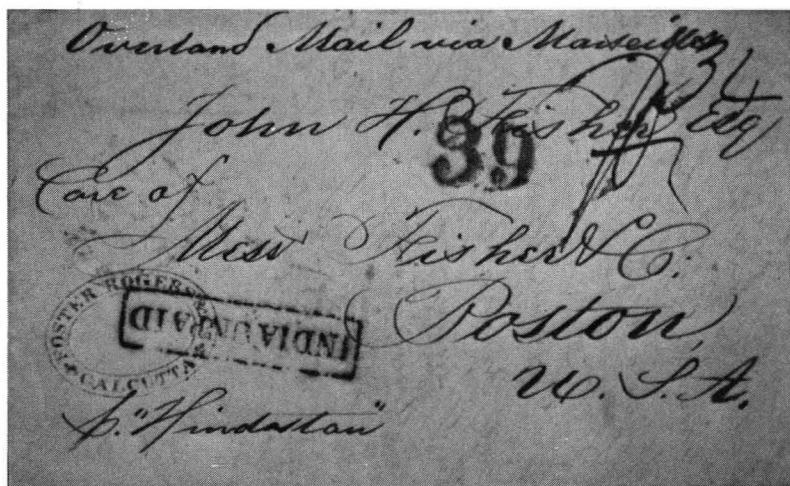 Overland Mail via Marseilles
34
John H. Fisher Esq
39
Care of
Mess Fisher & Co.
FOSTER ROGERS
CALCUTTA
INDIA UNPAID
Boston
U. S. A.
p. "Hindostan"